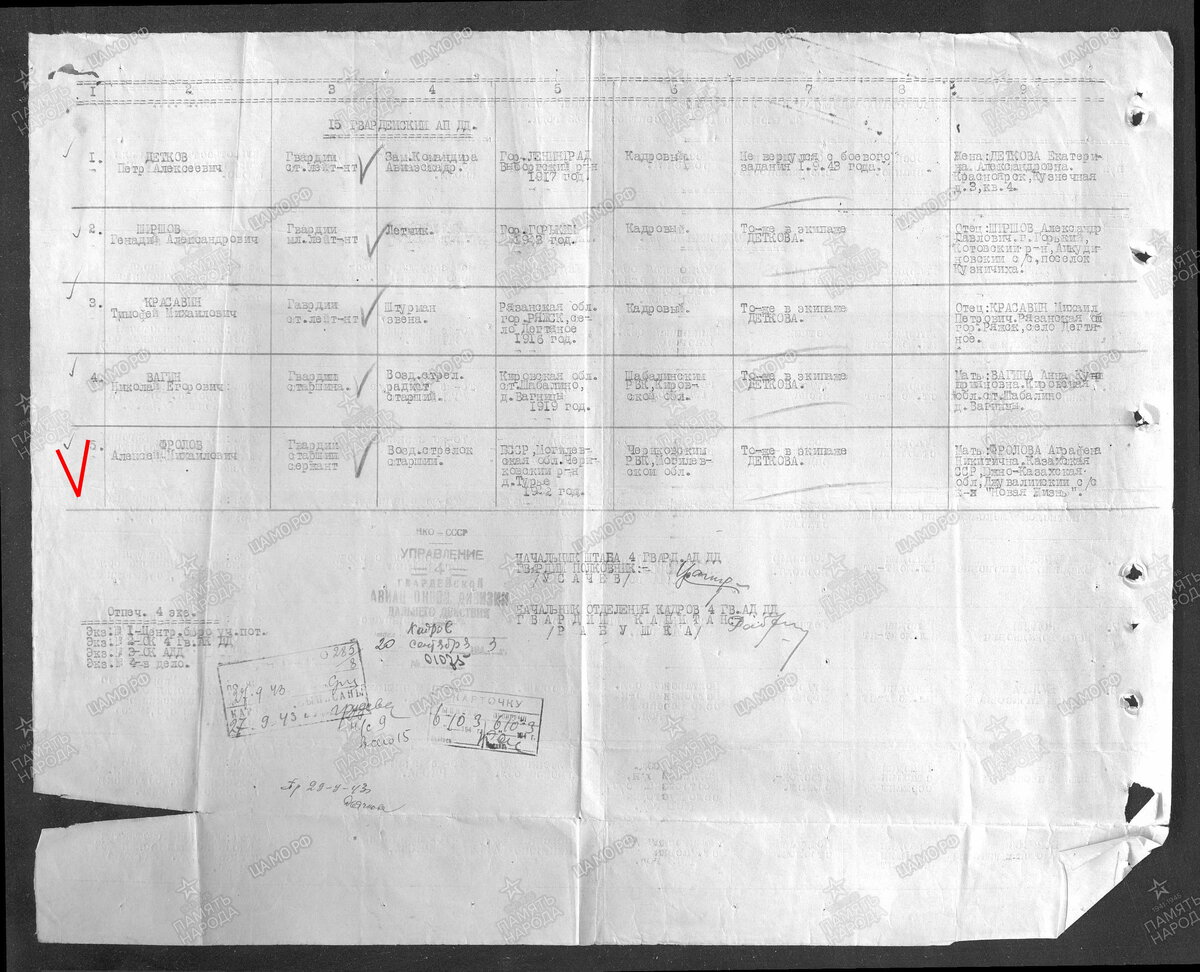 1 2 3 4 5 6 7 8 9
15 ГВАРДЕЙСКИЙ АП ДД.
1. ДЕТКОВ Гвардии Зам.Командира Гор.ЛЕНИНГРАД Кадровый. Не вернулся с боевого Жена:ДЕТКОВА Екатери-
Петр Алексеевич ст.лейт-нт Авиаэскадр. Выборгский р-н задания 1.9.43 года. на Александровна.
1917 год. Красноярск,Кузнечная
д.3,кв.4.
2. ШИРШОВ Гвардии Летчик. Гор.ГОРЬКИЙ Кадровый. То-же в экипаже Отец:ШИРШОВ Александр
Генадий Александрович мл.лейт-нт 1922 год. ДЕТКОВА. Павлович.г.Горький,
Котовский р-н,Анкуди-
новский с/с,поселок
Кузничиха.
3. КРАСАВИН Гвардии Штурман Рязанская обл. Кадровый. То-же в экипаже Отец:КРАСАВИН Михаил
Тимофей Михайлович ст.лейт-нт звена. гор.РЯЖСК,се- ДЕТКОВА. Петрович.Рязанская
ло Дегтяное гор.Ряжск,село Дегтя-
1916 год. ное.
4. ВАГИН Гвардии Возд.стрел. Кировская обл. Шабалинским То-же в экипаже Мать:ВАГИНА Анна
Николай Егорович старшина. радист ст.Шабалино, РВК,Киров- ДЕТКОВА. Кировская
старший. д.Вагинцы ской обл. обл.ст.Шабалино
1919 год. д.Вагинцы.
5. ФРОЛОВ Гвардии Возд.стрелок БССР,Могилев- Чериковским То-же в экипаже Мать:ФРОЛОВА Аграфена
Алексей Михайлович старший старший. ская обл.Чери- РВК,Могилев- ДЕТКОВА. Никитична.Казахская
сержант ковский р-н ской обл. ССР,Южно-Казахская
д.Турье обл,Джувалинский с/с
1922 год. к-з "Новая Жизнь".
НКО-СССР
УПРАВЛЕНИЕ
4
гвардейской
АВИАЦИОННОЙ ДИВИЗИИ
ДАЛЬНЕГО ДЕЙСТВИЯ
Кадров
20 сентября 3
01075
НАЧАЛЬНИК ШТАБА 4 ГВАРД.АД ДД
ГВАРДИИ ПОЛКОВНИК:-
/УСАЧЕВ/
НАЧАЛЬНИК ОТДЕЛЕНИЯ КАДРОВ 4 ГВ.АД ДД
ГВАРДИИ КАПИТАН:
/РЯБУШЕКА/
Отпеч. 4 экз.
Экз.№ 1-Центр.бюро уч.пот.
Экз.№ 2-ОК 4 Гв.АК ДД
Экз.№ 3-ОК АДД
Экз.№ 4-в дело.
27.9.43
КАРТОЧКУ
29-9-43
ЦАМО.РФ
ПАМЯТЬ НАРОДА